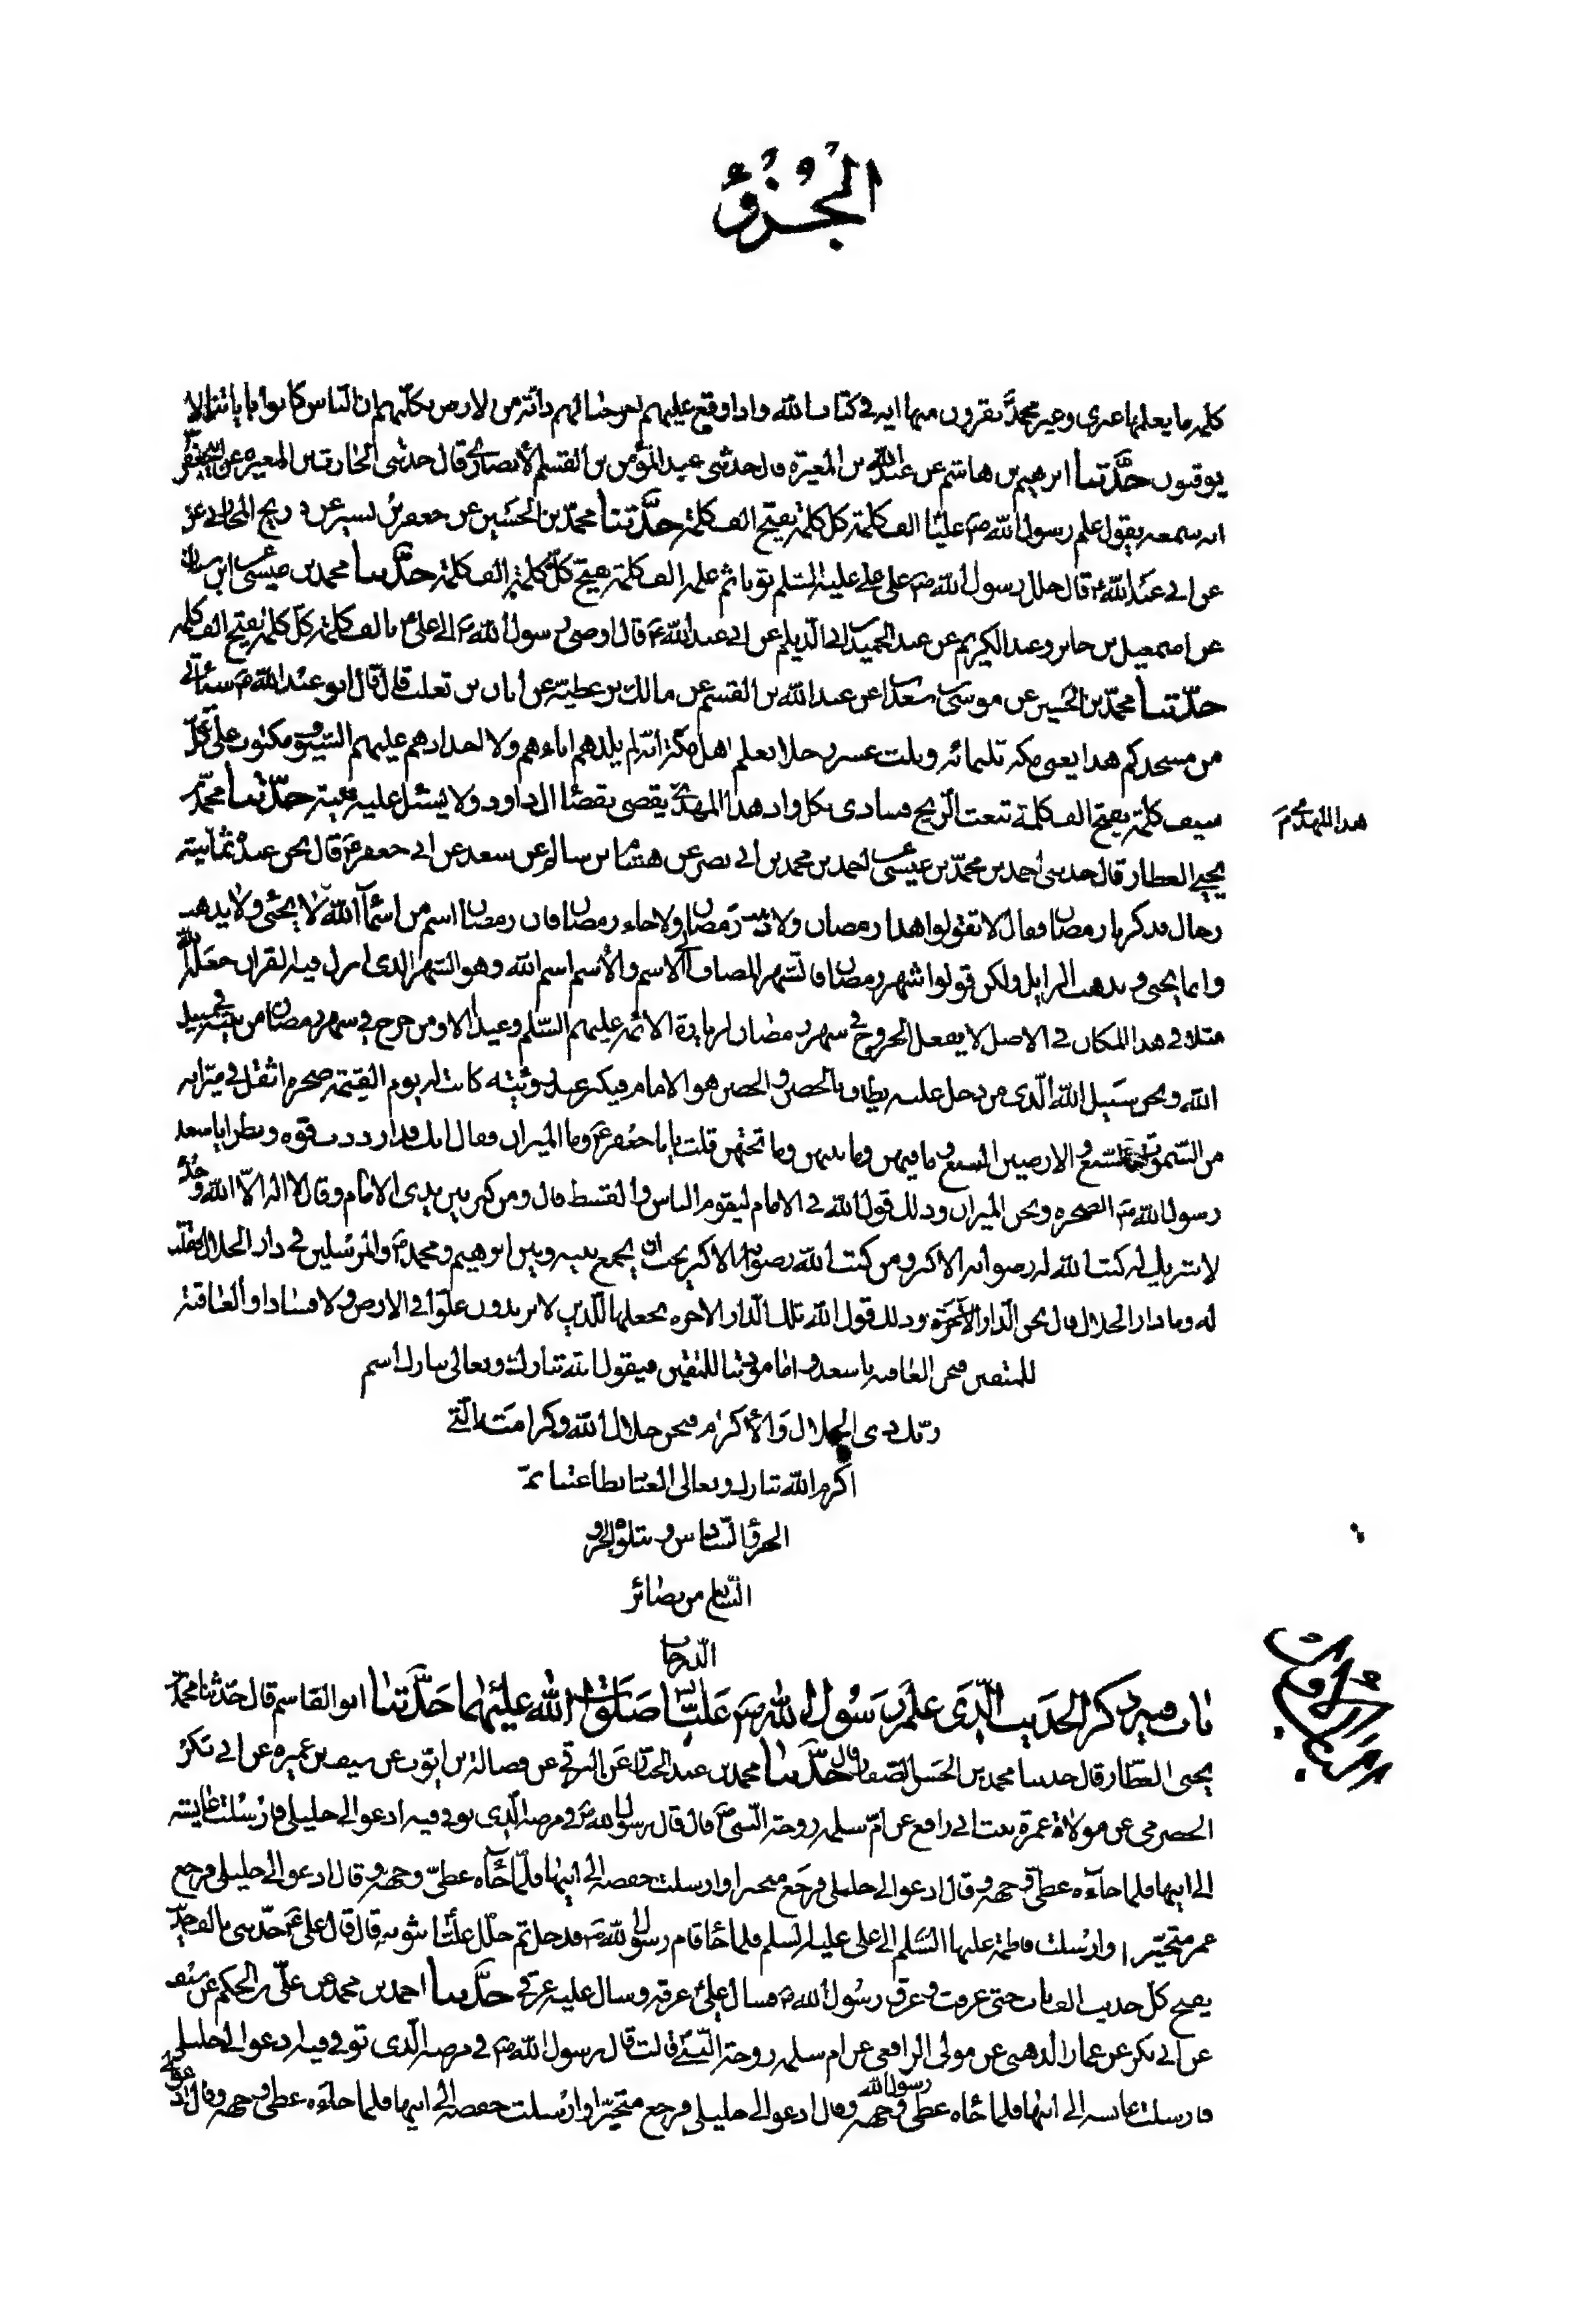 الجُزْؤُ
كلمه ما يعلمها غيرى وغير محمد يقرون منها ايه فى كتاب الله واذا وقع عليهم اخرجنا لهم دابة من الارض تكلمهم ان الناس كانوا باياتنا لا
يوقنون حدّثنا ابرهيم بن هاشم عن عبد الله بن المغيرة قال حدثنى عبد المؤمن بن القسم الأنصارى قال حدثنى الحارث بن المغيره عن ابى جعفر
انه سمعه يقول علم رسول الله ص عليّا الف كلمة كل كلمة يفتح الف كلمة حدّثنا محمد بن الحسين عن جعفر بن بشير عن ذريح المحاربى عن
عن ابى عبد الله ع قال جلل رسول الله ص على على عليه السّلم ثوبا ثم علمه الف كلمة يفتح كلّ كلمة الف كلمة حدّثنا محمد بن عيسى
عن اسمعيل بن جابر وعبد الكريم عن عبد الحميد بن ابى الديلم عن ابى عبد الله ع قال اوصى رسول الله ص الى على ع بالف كلمة كل كلمة يفتح الف كلمه
حدّثنا محمّد بن الحسين عن موسى بن سعدان عن عبد الله بن القسم عن مالك بن عطية عن ابان بن تغلب قال قال ابو عبد الله ع سياتى
من مسجدكم هذا يعنى مكه ثلثمائه وثلث عشر رجلا يعلم اهل مكة انه لم يلدهم اباءهم ولا اجدادهم عليهم السّيوف مكتوب على كلّ
سيف كلمة يفتح الف كلمة تبعث الرّيح فينادى بكل واد هذا المهدىّ يقضى بقضاء ال داود ولا يسئل عليه بيّنة حدّثنا محمّد بن
هذا المهدى
يحيى العطار قال حدثنى احمد بن محمّد بن عيسى عن احمد بن محمد بن ابى نصر عن هشام بن سالم عن سعد عن ابى جعفر ع قال نحن عنده ثمانية
رجال فذكرنا رمضان فقال لا تقولوا هذا رمضان ولا ذهب رمضان ولا جاء رمضان فان رمضان اسم من اسمآء الله لا يجئ ولا يذهب
وانما يجئ ويذهب الزايل ولكن قولوا شهر رمضان فالشهر المضاف الى الاسم والاسم اسم الله وهو الشهر الذى انزل فيه القران جعله الله
مثلا فى هذا المكان فى الاصل لا يفعل الخروج فى شهر رمضان لزيارة الائمه عليهم السّلم وعيدا الا ومن خرج فى شهر رمضان من بيته فى سبيل
الله ونحن سَبيل الله الّذى من دخل عليه يطاف بالحصن والحصن هو الامام فيكبر عند رؤيته كانت له يوم القيمة صخرة اثقل فى ميزانه
من السّموات السّبع والارضين السبع وما فيهن وما بينهن وما تحتهن قلت يابا جعفر ع وما الميزان فقال انك قد ازددت قوه ونظرا يا سعد
رسول الله ص الصخره ونحن الميزان وذلك قول الله فى الامام ليقوم الناس بالقسط قال ومن كبر بين يدى الامام وقال لا اله الّا الله وحده
لا شريك له كتب الله له رضوانه الاكبر ومن كتب الله رضوانه الاكبر يجب ان يجمع بينه وبين ابرهيم ومحمد ص والمرسلين فى دار الجلال فقلت
له وما دار الجلال قال نحن الدّار الآخرة وذلك قول الله تلك الدّار الاخره نجعلها للّذين لا يريدون علوّا فى الارض ولا فسادا والعاقبة
للمتقين فنحن العاقبه يا سعد واما مودتنا للمتقين فيقول الله تبارك وتعالى تبارك اسم
ربّك ذى الجلال وَالأكرام فنحن جلال الله وكرامته الّتى
اكرم الله تبارك وتعالى العباد بطاعتنا تمّ
الجزؤ السّادس ويتلوه الجزو
السّابع من بصائر
الدّرجات
باب فيه ذكر الحديث الّذى علم رَسُول الله ص عَليّا صَلَوات الله عليهما حَدَّثنا ابو القاسم قال حدثنا محمّد بن
يحيى العطّار قال حدثنا محمد بن الحسن الصفار قال حدَّثنا محمد بن عبد الجبار عَن البرقى عن فضالة بن ايّوب عن سيف بن عميره عن ابى بكر
الحضرمى عن مولاة عمرة بنت ابى رافع عن امّ سلمه زوجة النّبى ص قال قال رسول الله ص فى مرضه الّذى توفى فيه ادعوا لى خليلى فارسلت عايشه
الى ابيها فلما جآءه غطّى وجهه وقال ادعوا لى خليلى فرجَع متحيرا وارسلت حفصه الى ابيها فلمّا جآءه غطّى وجهه وقال ادعوا لى خليلى فرجع
عمر متحيّرا وارسلت فاطمة عليها السّلم الى على عليه السلم فلما جاء قام رسول الله ص فدخل ثم جلّل عليّا بثوبه قال قال على ع حدّثنى بالف حديث
يفتح كل حديث الف باب حتى عرقت وعرق رسُول الله ص فسال علىّ عرقه وسال عليه عرقى حدّثنا احمد بن محمد عن علىّ بن الحكم عن سيف
عن ابى بكر عن عمار الدهنى عن مولى الرافعى عن ام سلمه زوجة النّبى ص قالت قال رسول الله ص فى مرضه الّذى توفى فيه ادعوا لى خليلى
فارسلت عايشه الى ابيها فلما جاه غطى رسول الله وجهه وقال ادعوا لى خليلى فرجع متحيّرا وارسلت حفصه الى ابيها فلما جآءه غطى وجهه وقال ادعوا لى